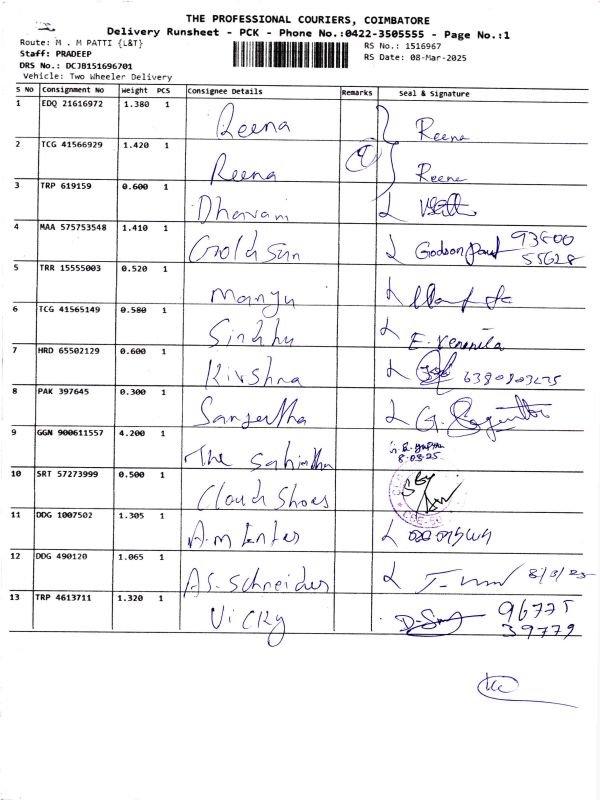 THE PROFESSIONAL COURIERS, COIMBATORE
Delivery Runsheet - PCK - Phone No.:0422-3505555 - Page No.:1
Route: M . M PATTI {L&T}
RS No.: 1516967
Staff: PRADEEP
RS Date: 08-Mar-2025
DRS No.: DCJB151696701
Vehicle: Two Wheeler Delivery
S NO Consignment No Weight PCS Consignee Details Remarks Seal & Signature
1 EDQ 21616972 1.380 1 Reena Reena
2 TCG 41566929 1.420 1 Reena Reena
3 TRP 619159 0.600 1 Dharani
4 MAA 575753548 1.410 1 Gold Sun Godson Paul 93600
55628
5 TRR 15555003 0.520 1 Manju
6 TCG 41565149 0.580 1 Sindhu E. Vennila
7 HRD 65502129 0.600 1 Kirshna
8 PAK 397645 0.300 1 Sangertha G.
9 GGN 900611557 4.200 1 The
8.03.25
10 SRT 57273999 0.500 1 Cloud Shoes
11 DDG 1007502 1.305 1 A.m Enter
12 DDG 490120 1.065 1 AS-Schneider 8/3/25
13 TRP 4613711 1.320 1 Vicky 96775
39779